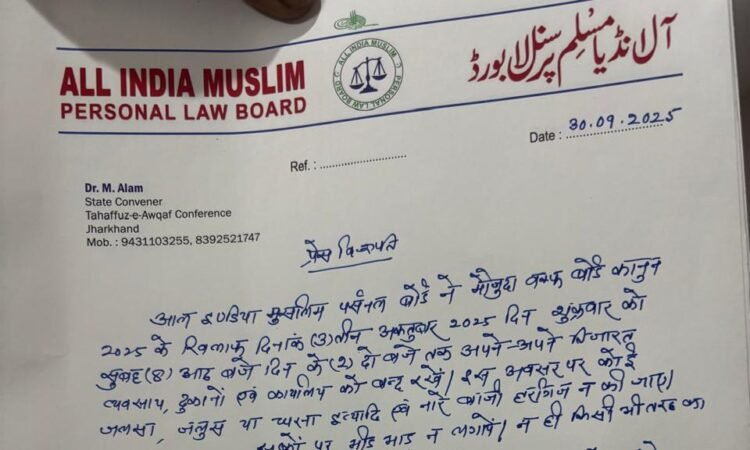 ALL INDIA MUSLIM
PERSONAL LAW BOARD
ALL INDIA MUSLIM
PERSONAL LAW BOARD
آل انڈیا مسلم پرسنل لا بورڈ
Ref. : ............................
Date : 30.09.2025
Dr. M. Alam
State Convener
Tahaffuz-e-Awqaf Conference
Jharkhand
Mob. : 9431103255, 8392521747
प्रेस विज्ञप्ति
आल इण्डिया मुसलिम पर्सनल बोर्ड ने मौजुदा वक्फ बोर्ड कानुन
2025 के खिलाफ दिनांक (3) तीन अक्तुबर 2025 दिन शुक्रवार को
सुबह (8) आठ बजे दिन के (2) दो बजे तक अपने-अपने तिजारत
व्यवसाय, दुकानों एवं कार्यालय को बन्द रखें। इस अवसर पर कोई
जलसा, जलुस या धरना इत्यादि एवं नारे बाजी हरगिज न की जाए।
पर भीड़ भाड़ न लगायें। न ही किसी भी तरह का